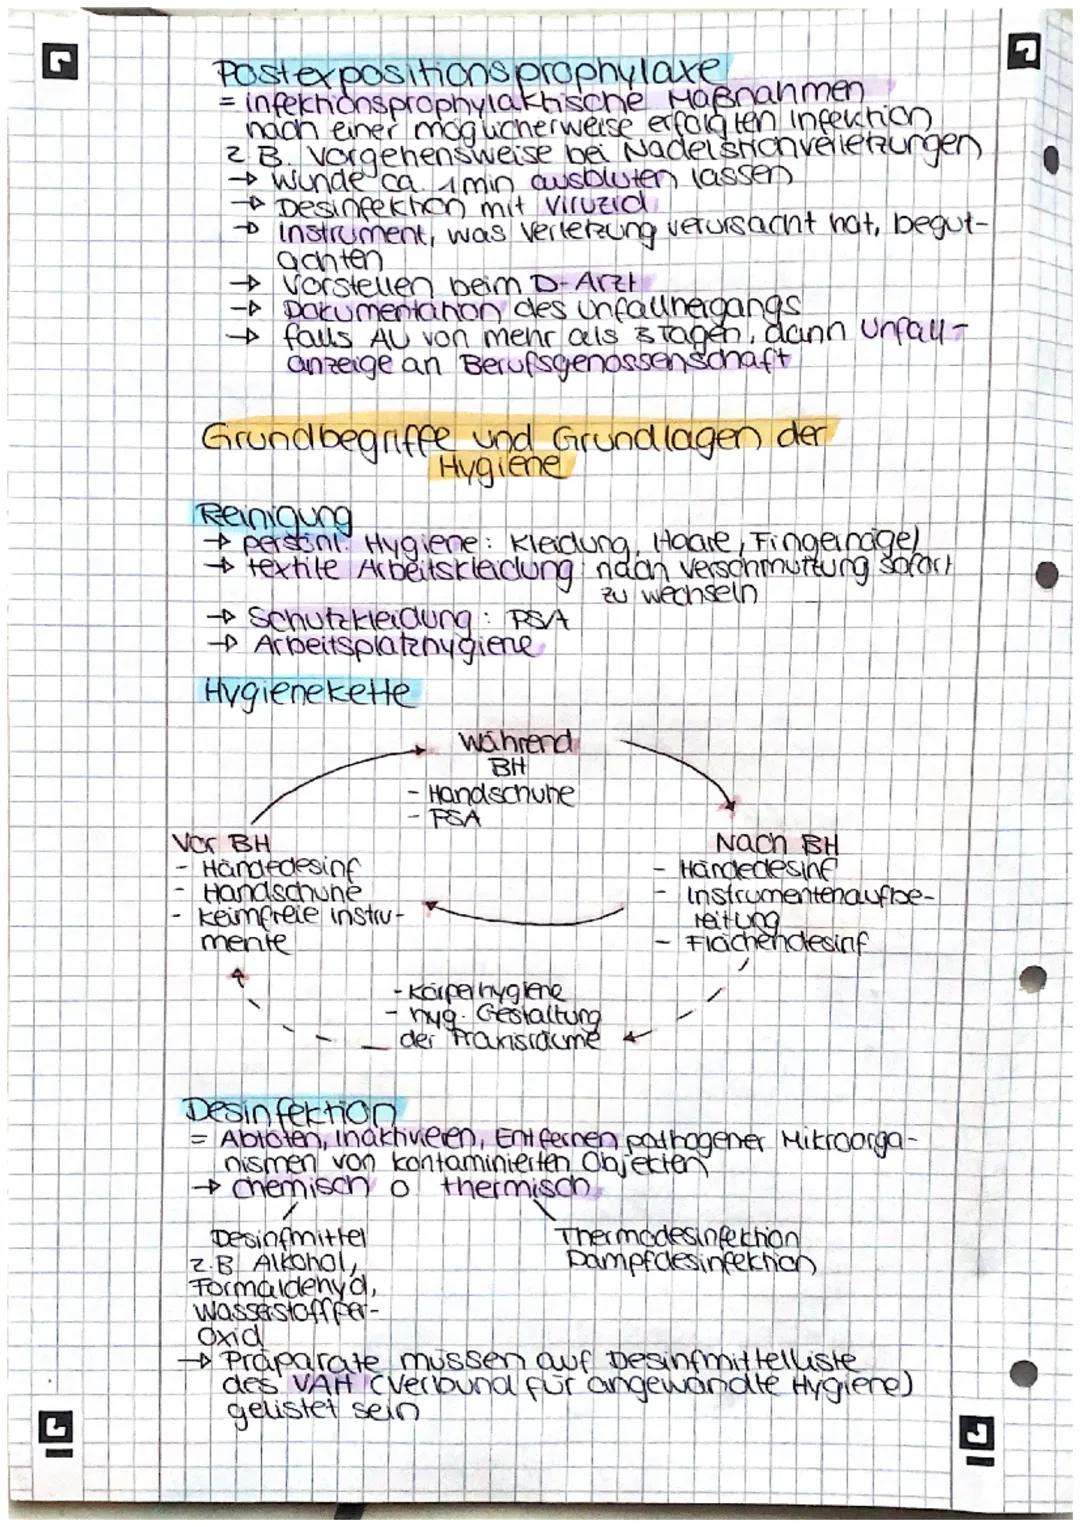 Postexpositionsprophylaxe
= infektionsprophylaktische Maßnahmen
nach einer möglicherweise erfolgten Infektion
z B. Vorgehensweise bei Nadelstichverletzungen
→ Wunde ca. 1min ausbluten lassen
→ Desinfektion mit Viruzid
→ Instrument, was Verletzung verursacht hat, begut-
achten
→ Vorstellen beim D-Arzt
→ Dokumentation des Unfallhergangs
→ falls AU von mehr als 3 Tagen, dann Unfall-
anzeige an Berufsgenossenschaft
Grundbegriffe und Grundlagen der
Hygiene
Reinigung
→ persönl. Hygiene: Kleidung, Haare, Fingernägel
→ textile Arbeitskleidung nach Verschmutzung sofort
zu wechseln
→ Schutzkleidung: PSA
→ Arbeitsplatzhygiene
Hygienekette
Während
BH
- Handschuhe
- PSA
Vor BH
- Händedesinf
- Handschuhe
- keimfreie Instru-
mente
Nach BH
- Händedesinf
- Instrumentenaufbe-
reitung
- Flächendesinf
- Körperhygiene
- hyg. Gestaltung
der Praxisräume
Desinfektion
= Abtöten, Inaktivieren, Entfernen pathogener Mikroorga-
nismen von kontaminierten Objekten
→ chemisch o thermisch
Desinfmittel
z.B. Alkohol,
Formaldehyd,
Wasserstoffper-
oxid
Thermodesinfektion
Dampfdesinfektion
→ Präparate müssen auf Desinfmittelliste
des VAH (Verbund für angewandte Hygiene)
gelistet sein